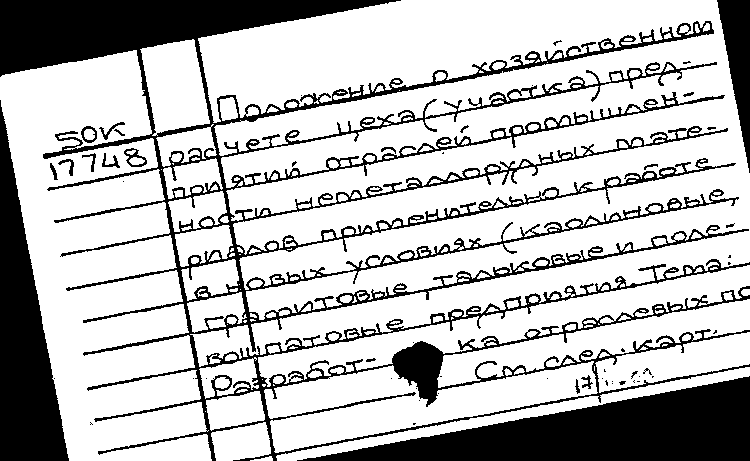 Положение о хозяйственном
50К
расчете цеха (участка) пред-
17748
приятий отраслей промышлен-
ности неметаллорудных мате-
риалов применительно к работе
в новых условиях (каолиновые,
графитовые, тальковые и поле-
вошпатовые предприятия. Тема:
Разработ- ка отраслевых по
См. след. карт.
17